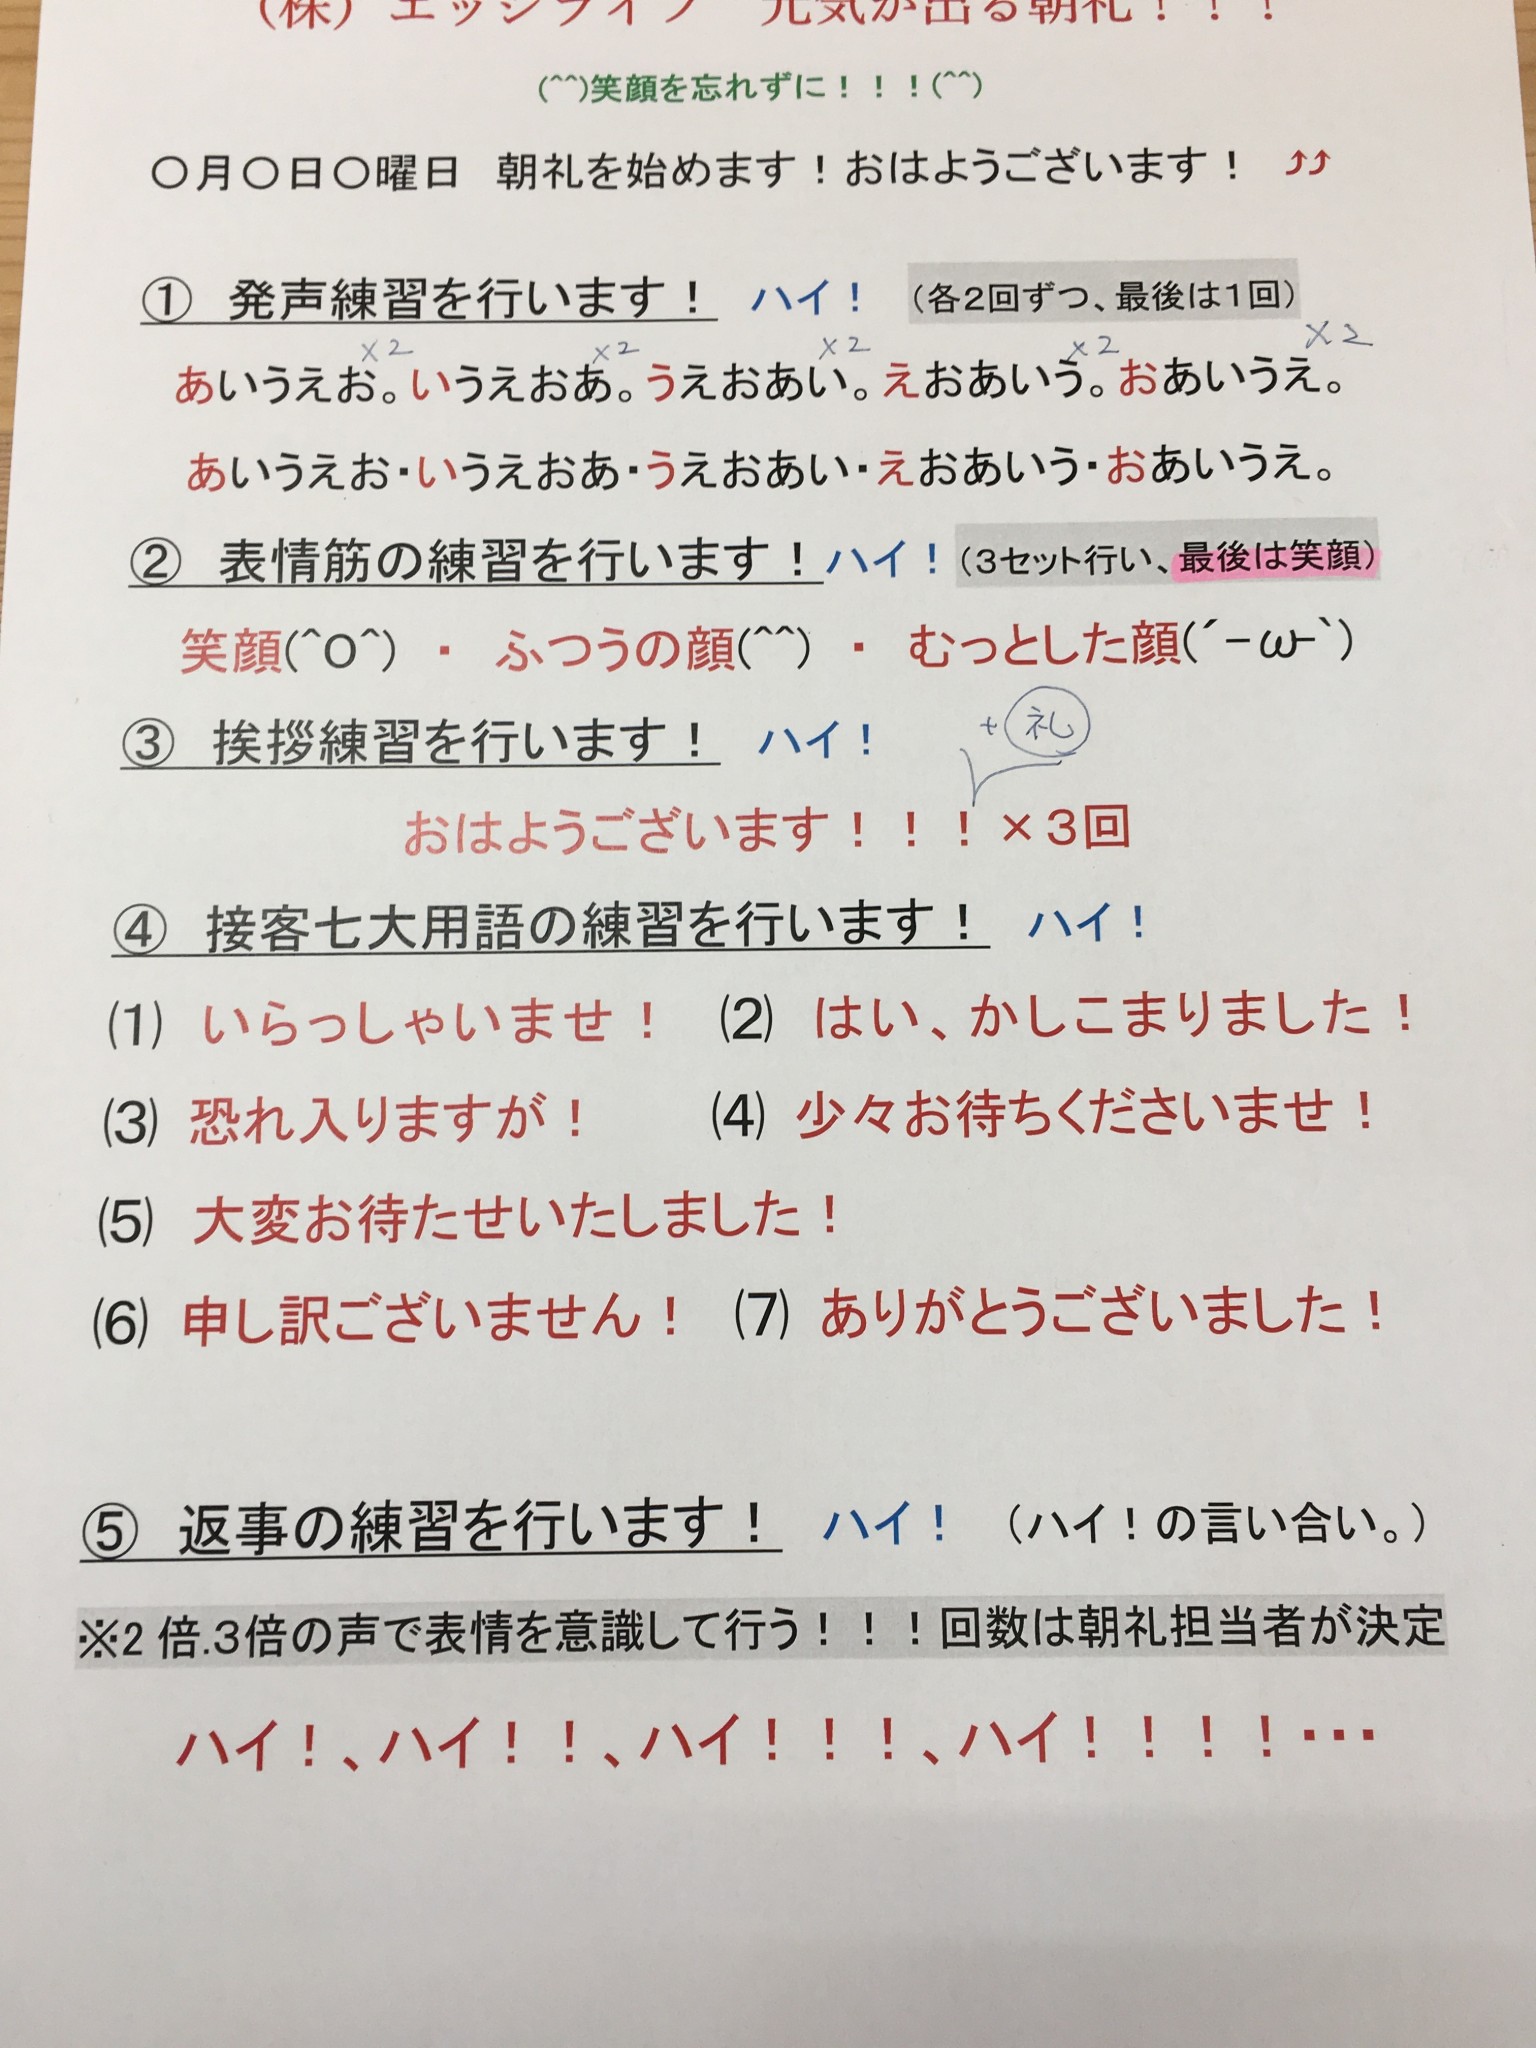 （株）エッジライフ　元気が出る朝礼！！！
(^^)笑顔を忘れずに！！！(^^)
〇月〇日〇曜日　朝礼を始めます！おはようございます！　⤴⤴
①　発声練習を行います！　ハイ！　（各２回ずつ、最後は１回）
×2 ×2 ×2 ×2 ×2
あいうえお。いうえおあ。うえおあい。えおあいう。おあいうえ。
あいうえお・いうえおあ・うえおあい・えおあいう・おあいうえ。
②　表情筋の練習を行います！ハイ！（３セット行い、最後は笑顔）
笑顔(^O^)　・　ふつうの顔(^^)　・　むっとした顔(´-ω-`)
③　挨拶練習を行います！　ハイ！
+礼
おはようございます！！！×３回
④　接客七大用語の練習を行います！　ハイ！
(1) いらっしゃいませ！　(2) はい、かしこまりました！
(3) 恐れ入りますが！　(4) 少々お待ちくださいませ！
(5) 大変お待たせいたしました！
(6) 申し訳ございません！　(7) ありがとうございました！
⑤　返事の練習を行います！　ハイ！　（ハイ！の言い合い。）
※2 倍.３倍の声で表情を意識して行う！！！回数は朝礼担当者が決定
ハイ！、ハイ！！、ハイ！！！、ハイ！！！！・・・